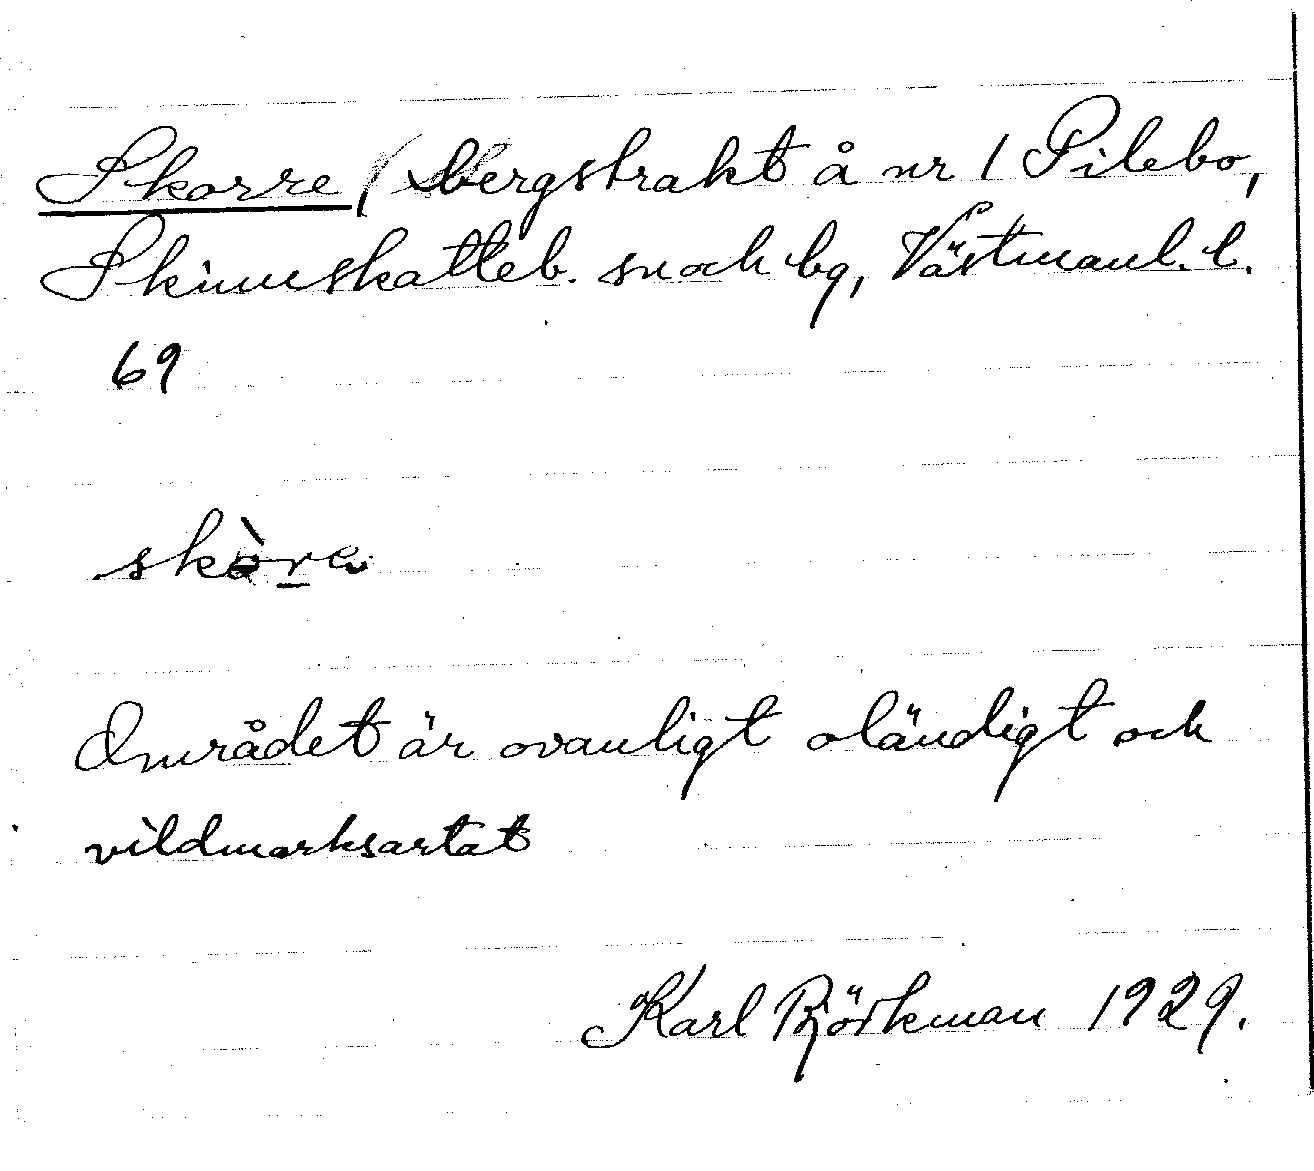 Skorre, bergstrakt å nr 1 Pilebo,
Skinnskatteb. sn och bg, Västmanl. l.
69
skòra
Området är ovanligt oländigt och
vildmarksartat
Karl Björkman 1929.